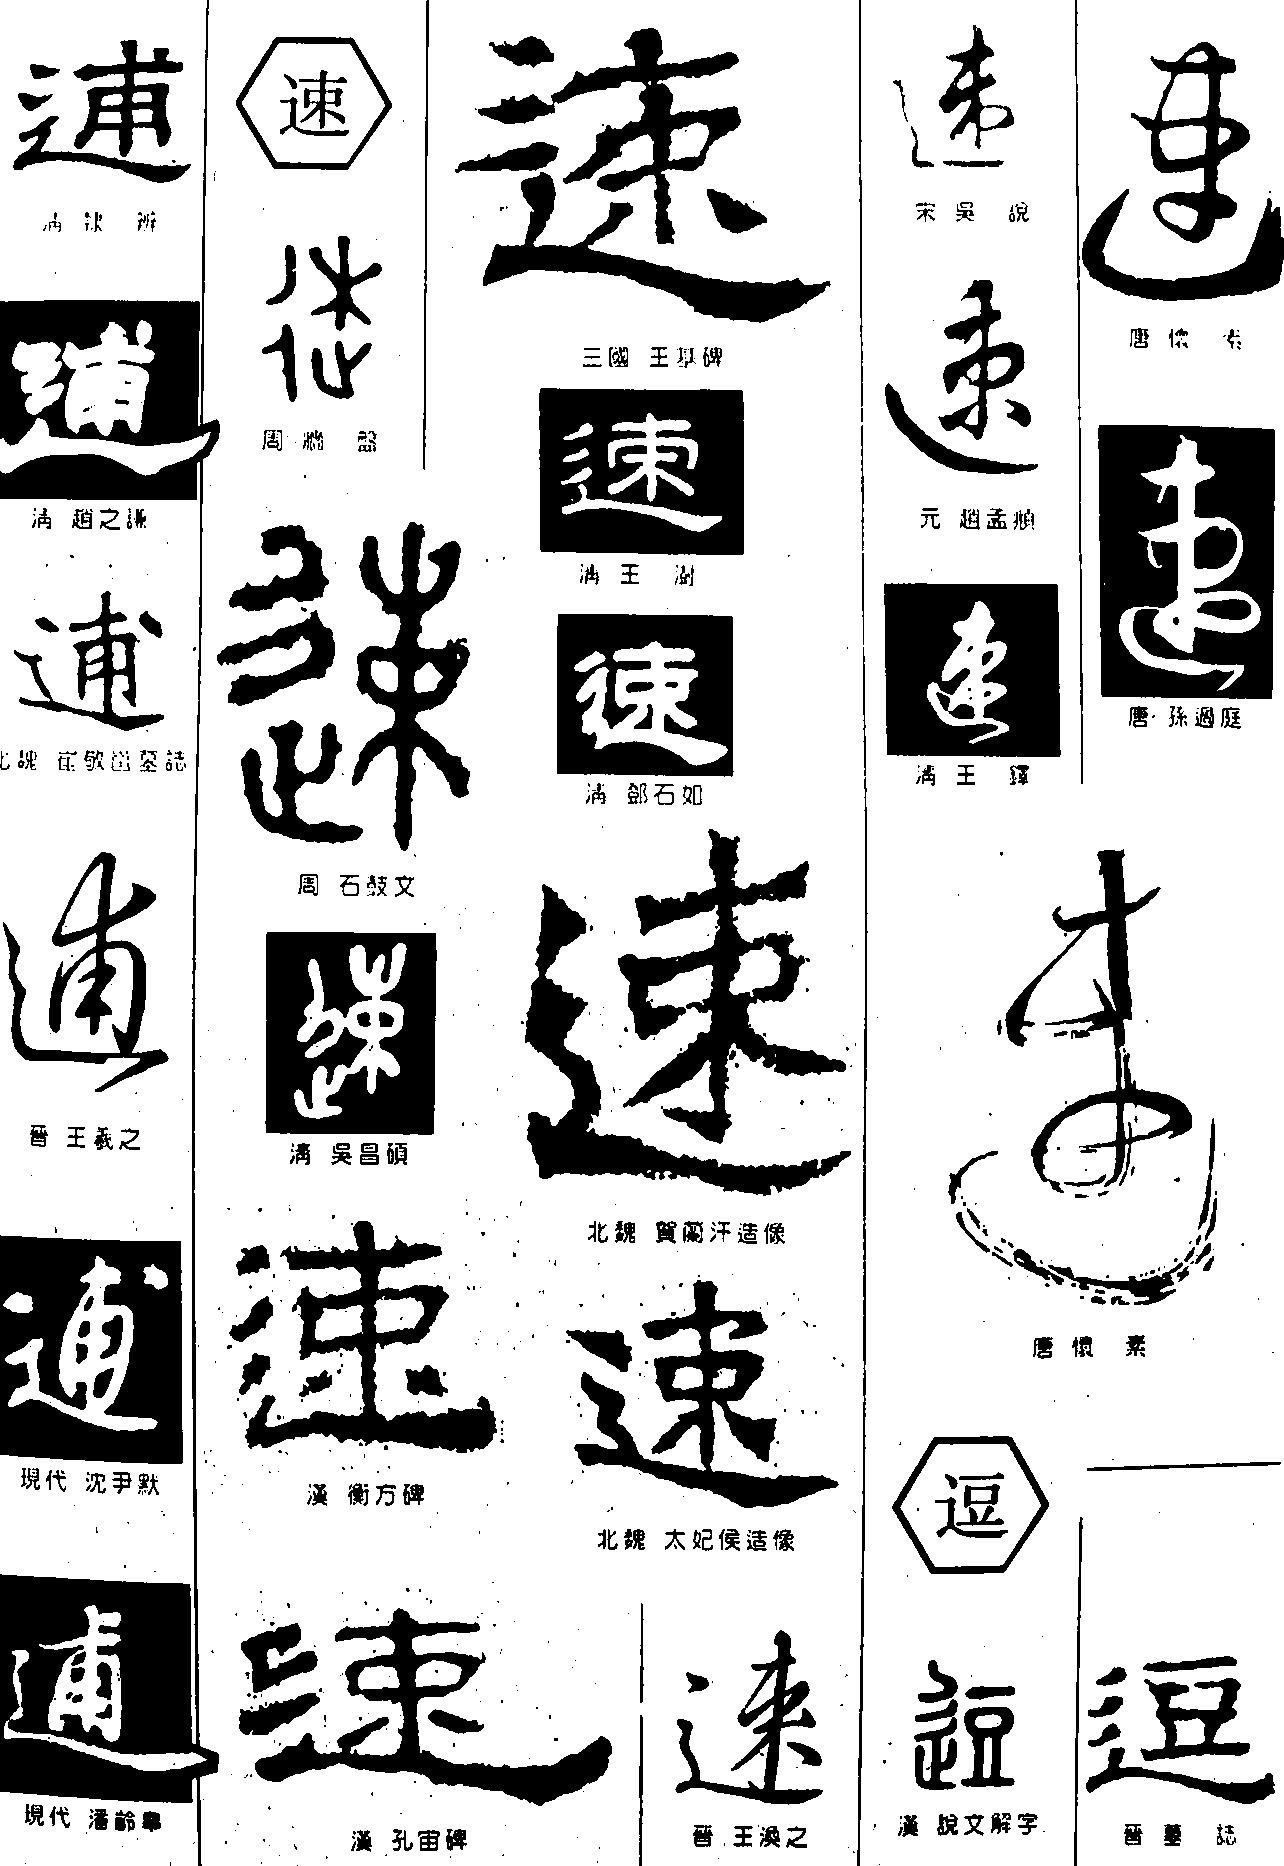 逋
逋
清 趙之謙
逋
北魏 崔敬邕墓誌
逋
晉 王羲之
逋
現代 沈尹默
逋
現代 潘齡皋
速
速
周 牆 盤
速
周 石鼓文
速
清 吳昌碩
速
漢 衡方碑
速
漢 孔宙碑
速
三國 王基碑
速
清 王 澍
速
清 鄧石如
速
北魏 賀蘭汗造像
速
北魏 太妃侯造像
速
晉 王渙之
速
宋 吳 說
速
元 趙孟頫
速
清 王 鐸
速
唐 懷 素
速
唐 孫過庭
速
唐 懷 素
逗
逗
漢 說文解字
逗
晉 墓 誌